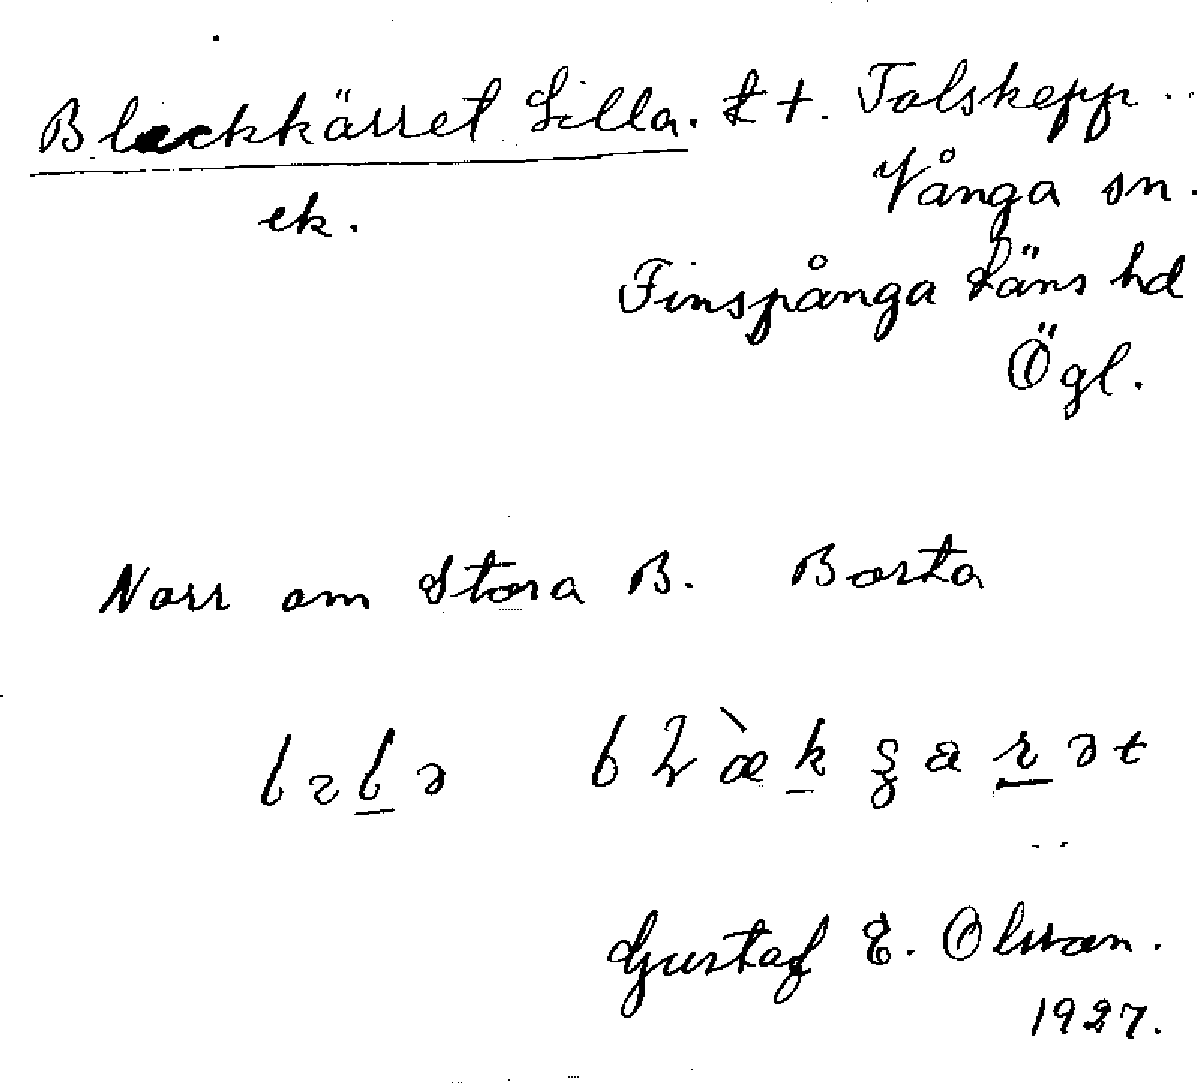 Bleckkärret Lilla. Lt. Tolskepp
ek. Vånga sn.
Finspånga Läns hd
Ögl.
Norr om Stora B. Borta
Gustaf E. Olsson.
1927.